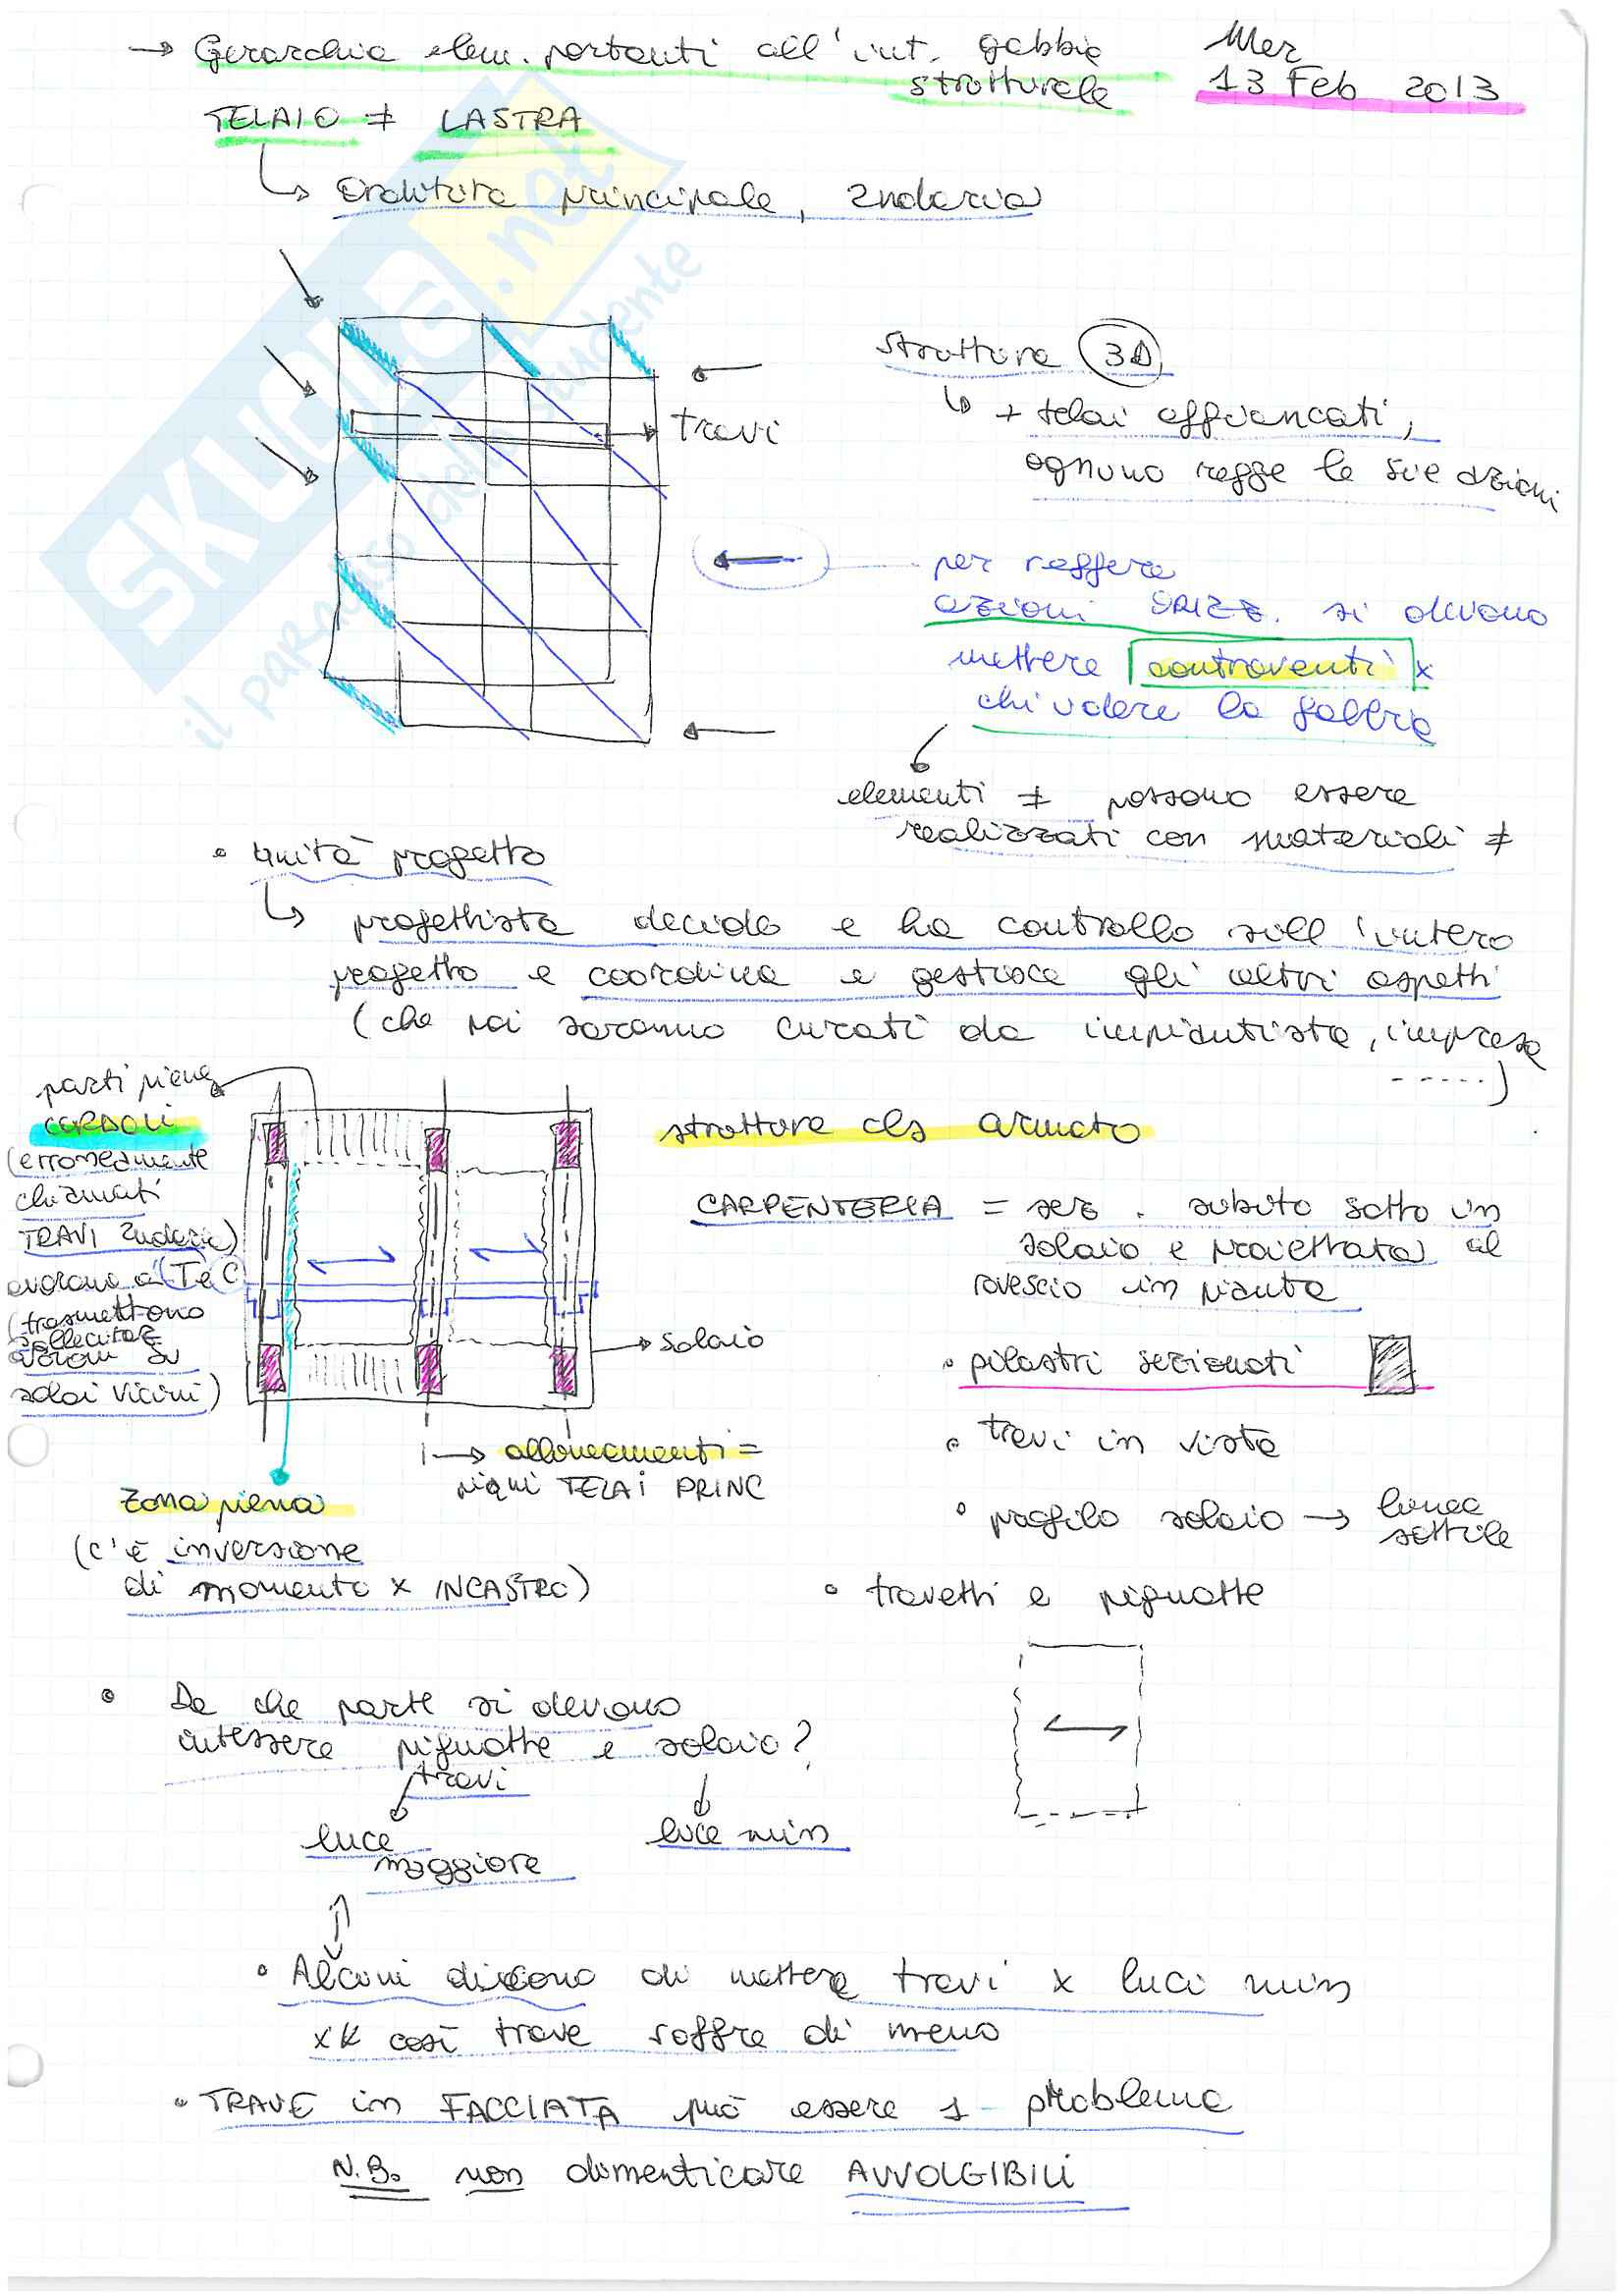 → Gerarchia elem. portanti all'int. gabbia
strutturale
Mer
13 Feb 2013
TELAIO ≠ LASTRA
↳ Orditura principale, 2ndaria
SKUOLA.net
il paradiso dello studente
struttura 3D
↳ + telai affiancati,
ognuno regge le sue azioni
→ travi
per reggere
azioni ORIZZ. si devono
mettere controventi x
chiudere la gabbia
elementi ≠ possono essere
realizzati con materiali ≠
• Unità progetto
↳ progettista decide e ha controllo sull'intero
progetto e coordina e gestisce gli altri aspetti
(che poi saranno curati da impiantista, impresa
-----)
parti piene
CORDOLI
(erroneamente
chiamati
TRAVI 2ndarie)
a T e C
(trasmettono
sollecitaz.
su
solai vicini)
struttura cls armato
CARPENTERIA = sez. subito sotto un
solaio e proiettata al
rovescio in pianta
→ solaio
• pilastri sezionati
→ allineamenti =
piani TELAI PRINC
• travi in vista
zona piena
(c'è inversione
di momento x INCASTRO)
• profilo solaio → linea
sottile
• travetti e pignatte
• Da che parte si devono
intessere pignatte e solaio?
travi
luce
maggiore
luce min
• Alcuni dicono di mettere travi x luci min
xk così trave soffre di meno
• TRAVE in FACCIATA può essere 1 problema
N.B. non dimenticare AVVOLGIBILI